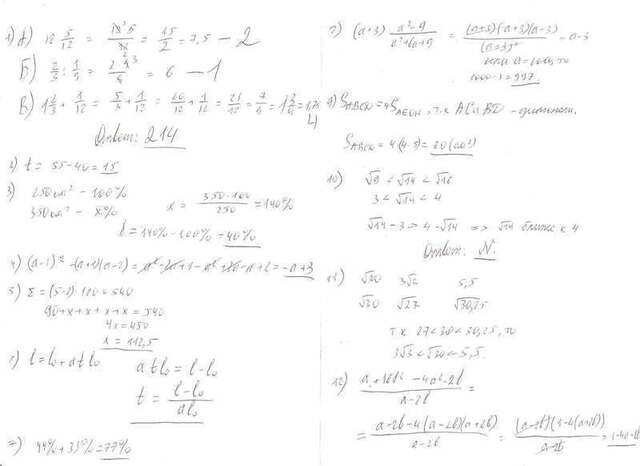 1) А) 18 · 5/12 = = 15/2 = 7,5 – 2
Б) = 6 – 1
В) 1 2/3 + 1/12 = 5/3 + 1/12 = 20/12 + 1/12 = 21/12 = 7/4 = 1 3/4 = 1,75
4
Ответ: 214
2) t = 55-40 = 15
3) 250 – 100%
350 – x%
x = 350·100/250 = 140%
140% – 100% = 40%
4) (a-1)² – (a+1)(a-2) = a² - 2a + 1 - a² + 2a - a + 2 = -a+3
5) Σ = (5-2)·180 = 540
90+x+x+x+x = 540
4x = 450
x = 112,5
l = l₀ + atl₀
atl₀ = l - l₀
t = (l - l₀)/(al₀)
7) 44% + 33% = 77%
(a+3) (a²-9)/(a²+6a+9) = (a+3)(a+3)(a-3)/(a+3)² = a-3
если a = 1000, то
1000-3 = 997.
= 4 , т.к AC и BD –
= 4(4·5) = 80
10) √9 < √14 < √16
3 < √14 < 4
√14 - 3 > 4 - √14 => √14 ближе к 4
Ответ: N.
√30 5,5
√30 √27 √30,25
т.к 27<30<30,25, то
3√3 < √30 < 5,5.
12) =
a-2b
= (a-2b-4(a-2b)(a+2b))/(a-2b) = (a-2b)(1-4(a+2b))/(a-2b) = 1-4a-8b